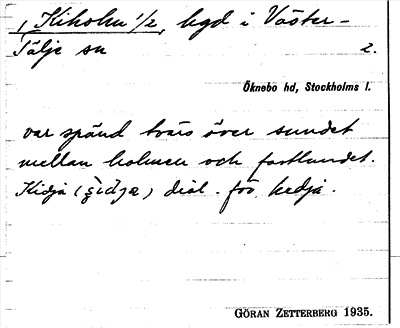 1 Kiholm 1/2, hgd i Väster-
Tälje sn 2.
Öknebo hd, Stockholms l.
var spänd tvärs över sundet
mellan holmen och fastlandet.
Kidja (              ) dial. för kedja.
GÖRAN ZETTERBERG 1935.